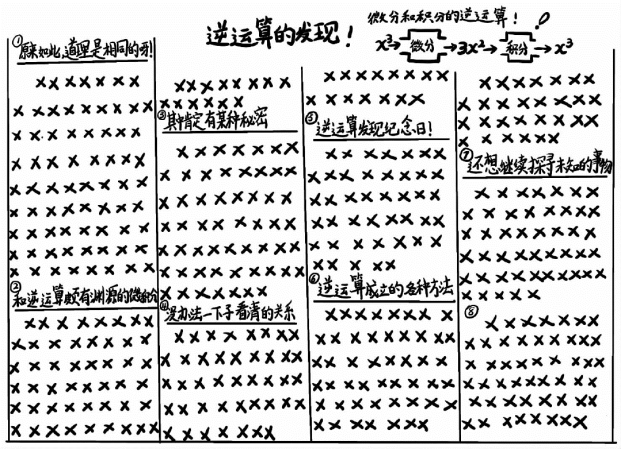 逆运算的发现!
微分和积分的逆运算!
x³→微分→3x²→积分→x³
①原来如此,道理是相同的呀!
②和逆运算颇有渊源的微积分
③其中肯定有某种秘密
④没办法一下子看清的关系
⑤逆运算发现纪念日!
⑥逆运算成立的各种方法
⑦还想继续探寻未知的事物
⑧